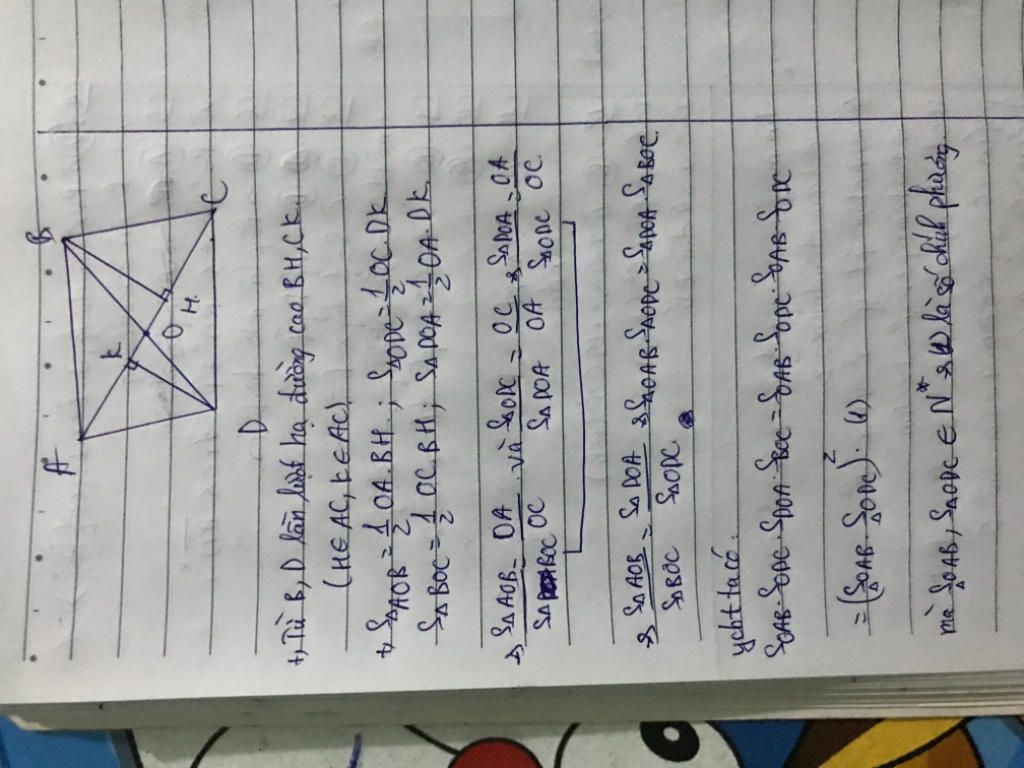 A B
K
O
H.
C
D
+, Từ B, D lần lượt hạ đường cao BH, CK.
(H∈AC, K∈AC)
+, S△AOB = 1/2 OA.BH ; S△ODC = 1/2 OC.DK
S△BOC = 1/2 OC.BH ; S△DOA = 1/2 OA.DK.
=> S△AOB/S△BOC = OA/OC và S△ODC/S△DOA = OC/OA => S△DOA/S△ODC = OA/OC
=> S△AOB/S△BOC = S△DOA/S△ODC => S△OAB.S△ODC = S△DOA.S△BOC.
ycbt ta có:
SOAB.SODC.SDOA.SBOC = SOAB.SODC.SOAB.SODC
= (S△OAB.S△ODC)². (1)
mà S△OAB, S△ODC ∈ N* => (1) là số chính phương.